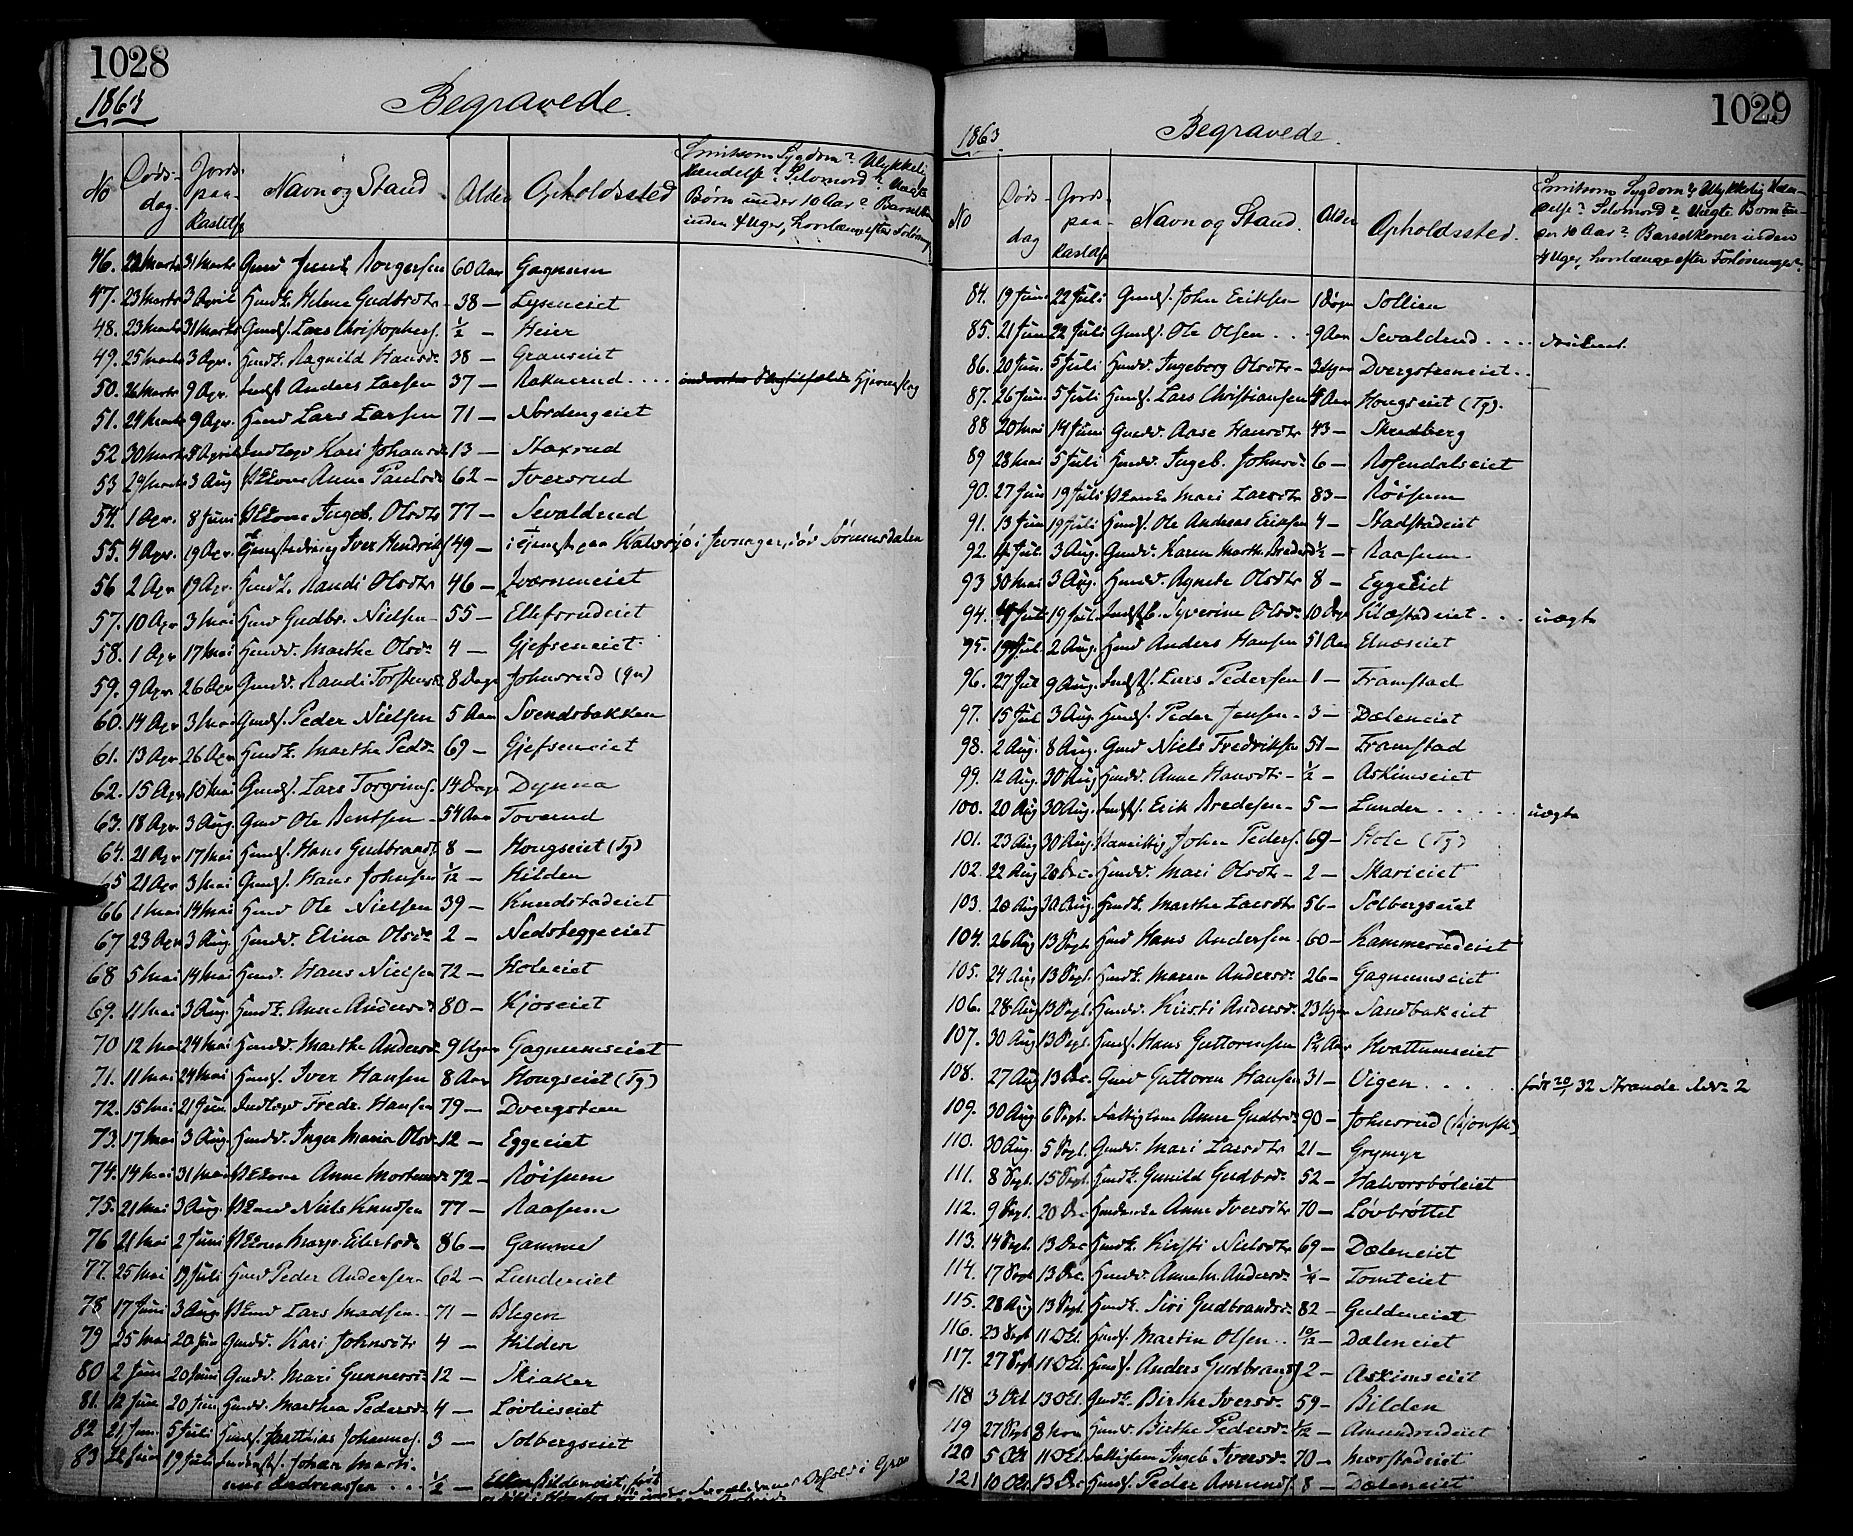 1028
1863
Begravede.
No Døds-dag Jords-paa-kastelse Navn og Stand Alder Opholdssted Smitsom Sygdom? Ulykkelig Hændelse? Selvmord? Uægte Børn under 10 Aar? Barselkoner inden 4 Uger, hvorlænge efter Forløsningen?
46. 22 Marts 31 Marts Gmd Borgersen 60 Aar Gagnum
47. 23 Marts 3 April Hmdk. Helene Gudbrdtr 38 — Lyseneiet
48. 23 Marts 31 Marts Gmds. Lars Christophers. ½ — Heier
49. 25 Marts 3 Apr. Hmdk. Ragnild Hansd. 38 — Granseiet
50. 26 Marts 9 Apr. Indst Anders Larsen 37 — Raknerud ....
51. 24 Marts 9 Apr. Hmd Lars Larsen 71 — Nordengeiet
52 30 Marts 5 April Kari Johansd. 13 — Staxrud
53 29 Marts 3 Aug Anne Paulsd. 62 — Iversrud
54. 1 Apr. 8 Juni Ingeb. Olsdtr 77 — Sevaldrud
55. 4 Apr. 19 Apr. Iver Hendriks 49 — i Jevnager
56 2 Apr 19 Apr. Hmdk. Randi Olsdtr 46 — Iverseneiet
57. 10 Apr 3 Mai Hmd Gudbr. Nielsen 55 — Ellefsrudeiet
58. 1 Apr 17 Mai Hmdd. Marthe Olsd. 4 — Gjefseneiet
59. 9 Apr. 26 Apr Gmdd. Randi Torstensd. 8 Dage Johnsrud (Gn)
60. 14 Apr 3 Mai Gmds. Peder Nielsen 5 Aar Svendsbakken
61. 13 Apr. 26 Apr Hmdk. Marthe Pedd. 69 — Gjefseneiet
62. 15 Apr 10 Mai Gmds. Lars Torgrims. 14 Dage Dynna
63. 18 Apr. 3 Aug. Gmd Ole Berntsen 54 Aar Toverud
64. 21 Apr 17 Mai Hmds. Hans Gudbrands. 8 — Hougseiet (Tg)
65 21 Apr 3 Mai Gmds. Hans Johnsen 1/12 — Hilden
66 1 Mai 14 Mai Hmd Ole Nielsen 39 — Knudstadeiet
67 23 Apr 3 Aug Hmdd. Elina Olsd. 2 — Nedsteggeeiet
68 5 Mai 14 Mai Hmd. Hans Nielsen 72 — Holeeiet
69. 11 Mai 3 Aug. Hmdk. Anne Andersd. 80 — Kjoseiet
70 12 Mai 24 Mai Hmdd. Marthe Andersd. 9 Uger Gagnumseiet
71. 11 Mai 24 Mai Hmds. Iver Hansen 8 Aar Hougseiet (Tg)
72. 15 Mai 21 Juni Indlagt Fredr. Hansen 79 — Dvergsteen
73. 17 Mai 3 Aug. Hmdd. Inger Maria Olsd. 12 — Eggeeiet
74. 14 Mai 31 Mai Anne Mortensd. 72 — Røisum
75. 21 Mai 3 Aug. Niels Knudsen 77 — Raasum
76 21 Mai 2 Juni Eilertsd. 86 — Gamme
77. 25 Mai 19 Juli Hmd Peder Andersen 62 — Lundereiet
78 17 Juni 3 Aug. Lars Madsen 71 — Blegen
79 25 Mai 20 Jun Gmdd. Kari Johnsdtr 4 — Hilden
80 2 Juni 20 Juni Gmdd. Mari Gunnersd. 12 — Skiaker
81. 12 Juni 20 Juni Hmdd. Marthea Pedersd. 4 — Løvlieseiet
82 21 Jun. 5 Juli Hmds. Matthias Johannes. 3 — Solbergseiet
83 22 Juni 19 Juli Johan Martinus Andreassen .. ½ —
1029
1863
Begravede.
No Døds-dag Jords-paa-kastelse Navn og Stand. Alder Opholdssted. Smitsom Sygdom? Ulykkelig Hændelse? Selvmord? Uægte Børn under 10 Aar? Barselkoner inden 4 Uger, hvorlænge efter Forløsningen?
84. 19 Juni 22 Juli Gmds. John Eriksen 1 Døgn Sollien
85. 21 Juni 22 Juli Gmds. Ole Olsen .. 9 Aar Sevaldrud .... druknet.
86. 20 Jun. 5 Juli Hmdd. Ingeborg Olsdtr 3 Uger Dvergsteneiet ..
87. 26 Jun 5 Juli Hmds. Lars Christiansen 4 Aar Hougseiet (Tg).
88 20 Mai 14 Juni Gmdd. Aase Hansdtr 43 — Skredberg
89 28 Mai 5 Juli Hmdd. Ingeb. Johnsd. 6 — Rosendalseiet
90. 27 Jun 19 Juli Mari Larsdtr 83 — Røisum
91. 13 Jun 19 Juli Hmds. Ole Andreas Eriksen 4 — Stadstadeiet
92. Jul. 3 Aug. Gmdd. Karen Marthe ½ — Raasum
93 30 Mai 3 Aug. Hmdd. Agnete Olsdtr 8 — Eggeeiet
94. 4 Juli 19 Jul. Syverine Olsd. 10 Dage Flaastadeiet ... uægte
95. 19 Jul. 2 Aug. Hmd Anders Hansen 51 Aar Elnæseiet
96. 27 Jul 9 Aug. Lars Pedersen 1 — Framstad
97. 15 Jul 3 Aug. Hmds. Peder Jensen 3 — Dæleneiet
98. 2 Aug. 8 Aug. Gmd Niels Fredriksen 51 — Framstad
99. 12 Aug. 30 Aug Hmdd. Anne Hansdtr ½ — Askimseiet
100. 20 Aug 30 Aug. Erik Bredesen 5 — Lunder ..... uægte
101. 23 Aug 30 Aug. Vanvittig John Peders. 69 — Hole (Tg)
102. 22 Aug 20 Dec. Hmdd. Mari Olsdtr 2 — Skarieiet
103. 20 Aug 30 Aug. Hmdk. Marthe Larsdtr 56 — Solbergseiet
104. 26 Aug 13 Sept. Hmd Hans Andersen 60 — Kammerudeiet
105. 24 Aug 13 Sept. Hmdk. Maren Andersd. 26 — Gagnumseiet
106. 28 Aug 13 Sept. Hmdd. Kirsti Andersd. 23 Uger Sandbakeiet
107. 30 Aug 13 Sept. Hmds. Hans Guttormsen Aar Hvattumseiet
108. 27 Aug 13 Dec. Gmd Guttorm Hansen 31 — Vigen .... født 32 Strande 2
109. 30 Aug 6 Sept. Fattiglem Anne Gudbrd. 90 — Johnsrud
110. 30 Aug. 5 Sept. Gmdd. Mari Larsdtr 21 — Grymyr
111. 8 Sept. 15 Sept. Hmdk. Gunild Gudbrd. 52 — Halvorsbøleiet
112. 9 Sept. 20 Dec Anne Iversdtr 70 — Løvbrøttet
113. 14 Sept. 13 Dec Hmdk. Kirsti Nielsdtr 69 — Dæleneiet
114. 17 Sept 13 Dec. Hmdd. Anne M. Andersd. ¼ — Tomteiet
115. 28 Aug 13 Sept. Hmdk. Siri Gudbrandsd. 82 — Guldeneiet
116. 23 Sept 11 Okt. Hmds. Martin Olsen .. 10/12 — Dæleneiet
117. 27 Sept 11 Okt. Hmds. Anders Gudbrands. 2 — Askimseiet
118 3 Okt 13 Okt. Gmdk. Birthe Iversd. 59 — Bilden
119 27 Sept 8 Nov Hmdd. Birthe Pedersd. 1/12 — Amundrudeiet
120 5 Okt. 11 Okt. Fattiglem Ingeb Iversd. 70 — Morstadeiet
121 10 Okt. 13 Dec Hmds. Peder Amunds. 8 — Dæleneiet